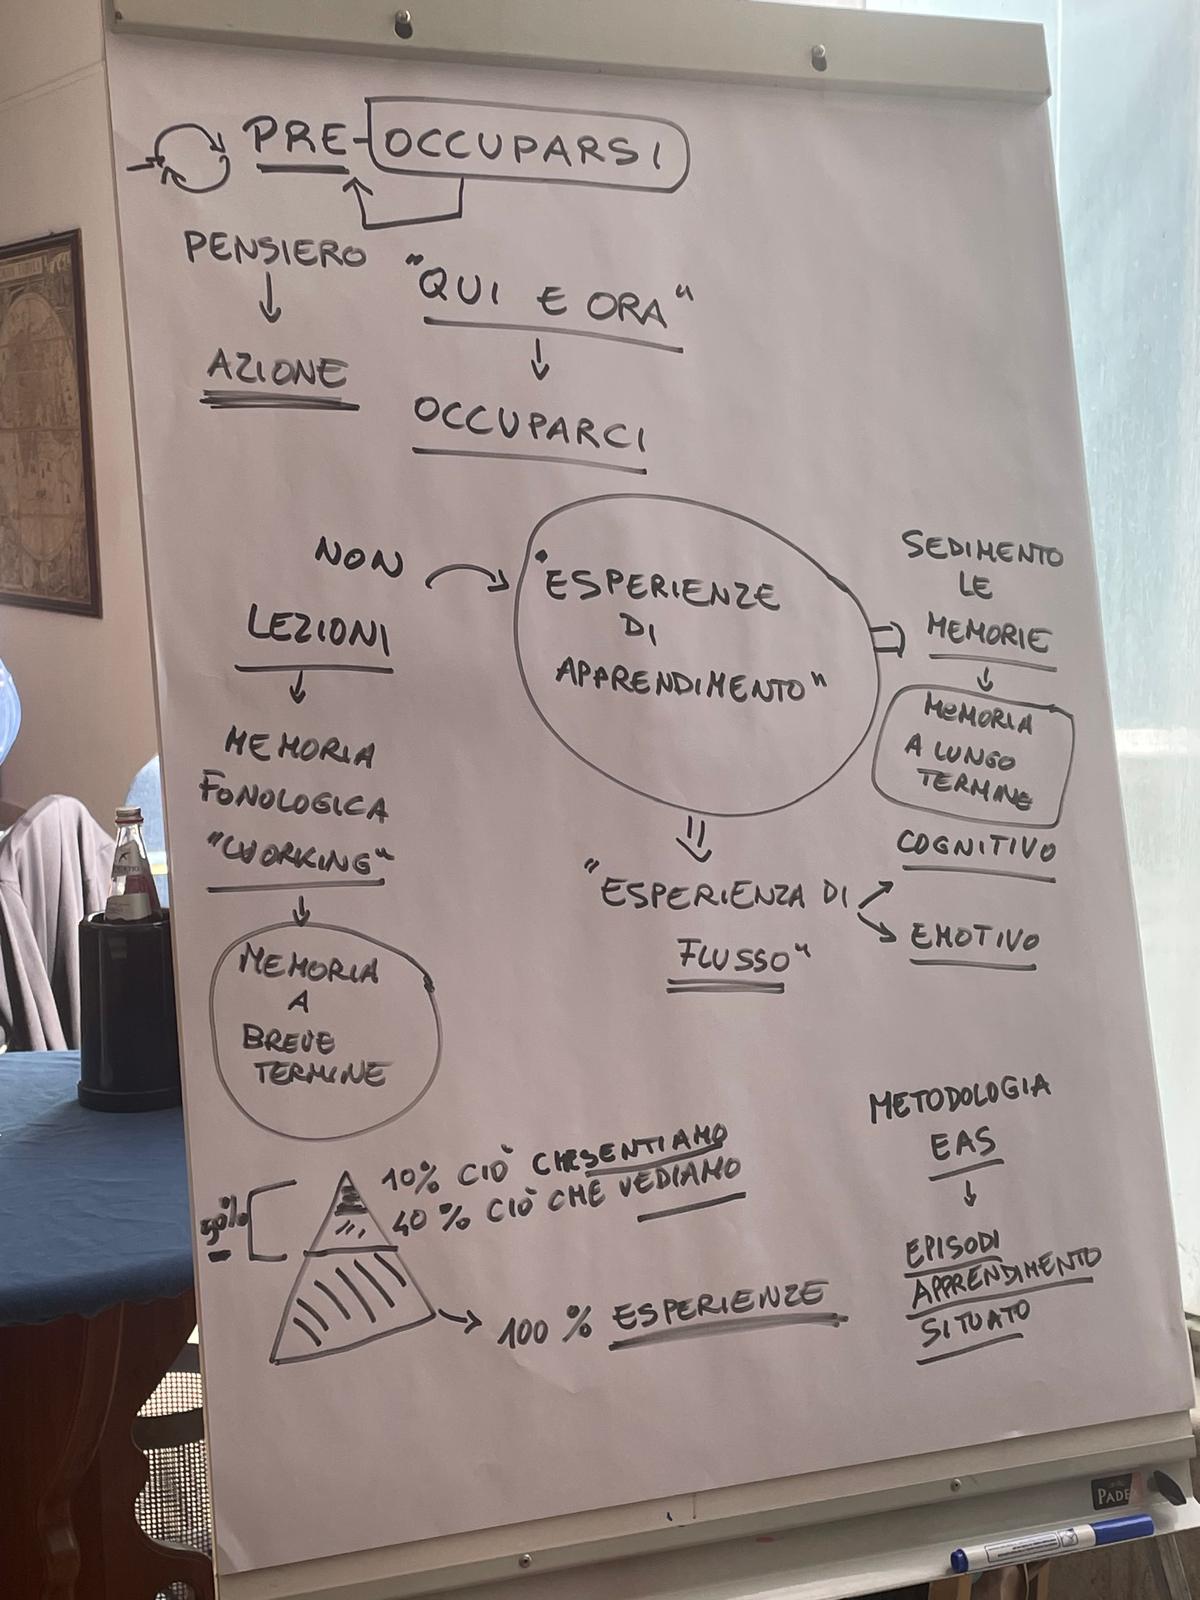 PRE-OCCUPARSI
PENSIERO
AZIONE
"QUI E ORA"
OCCUPARCI
NON
LEZIONI
MEMORIA
FONOLOGICA
"WORKING"
MEMORIA
A
BREVE
TERMINE
"ESPERIENZE
DI
APPRENDIMENTO"
SEDIMENTO
LE
MEMORIE
MEMORIA
A LUNGO
TERMINE
"ESPERIENZA DI
FLUSSO"
COGNITIVO
EMOTIVO
50%
10% CIÒ CHE SENTIAMO
40% CIÒ CHE VEDIAMO
100% ESPERIENZE
METODOLOGIA
EAS
EPISODI
APPRENDIMENTO
SITUATO